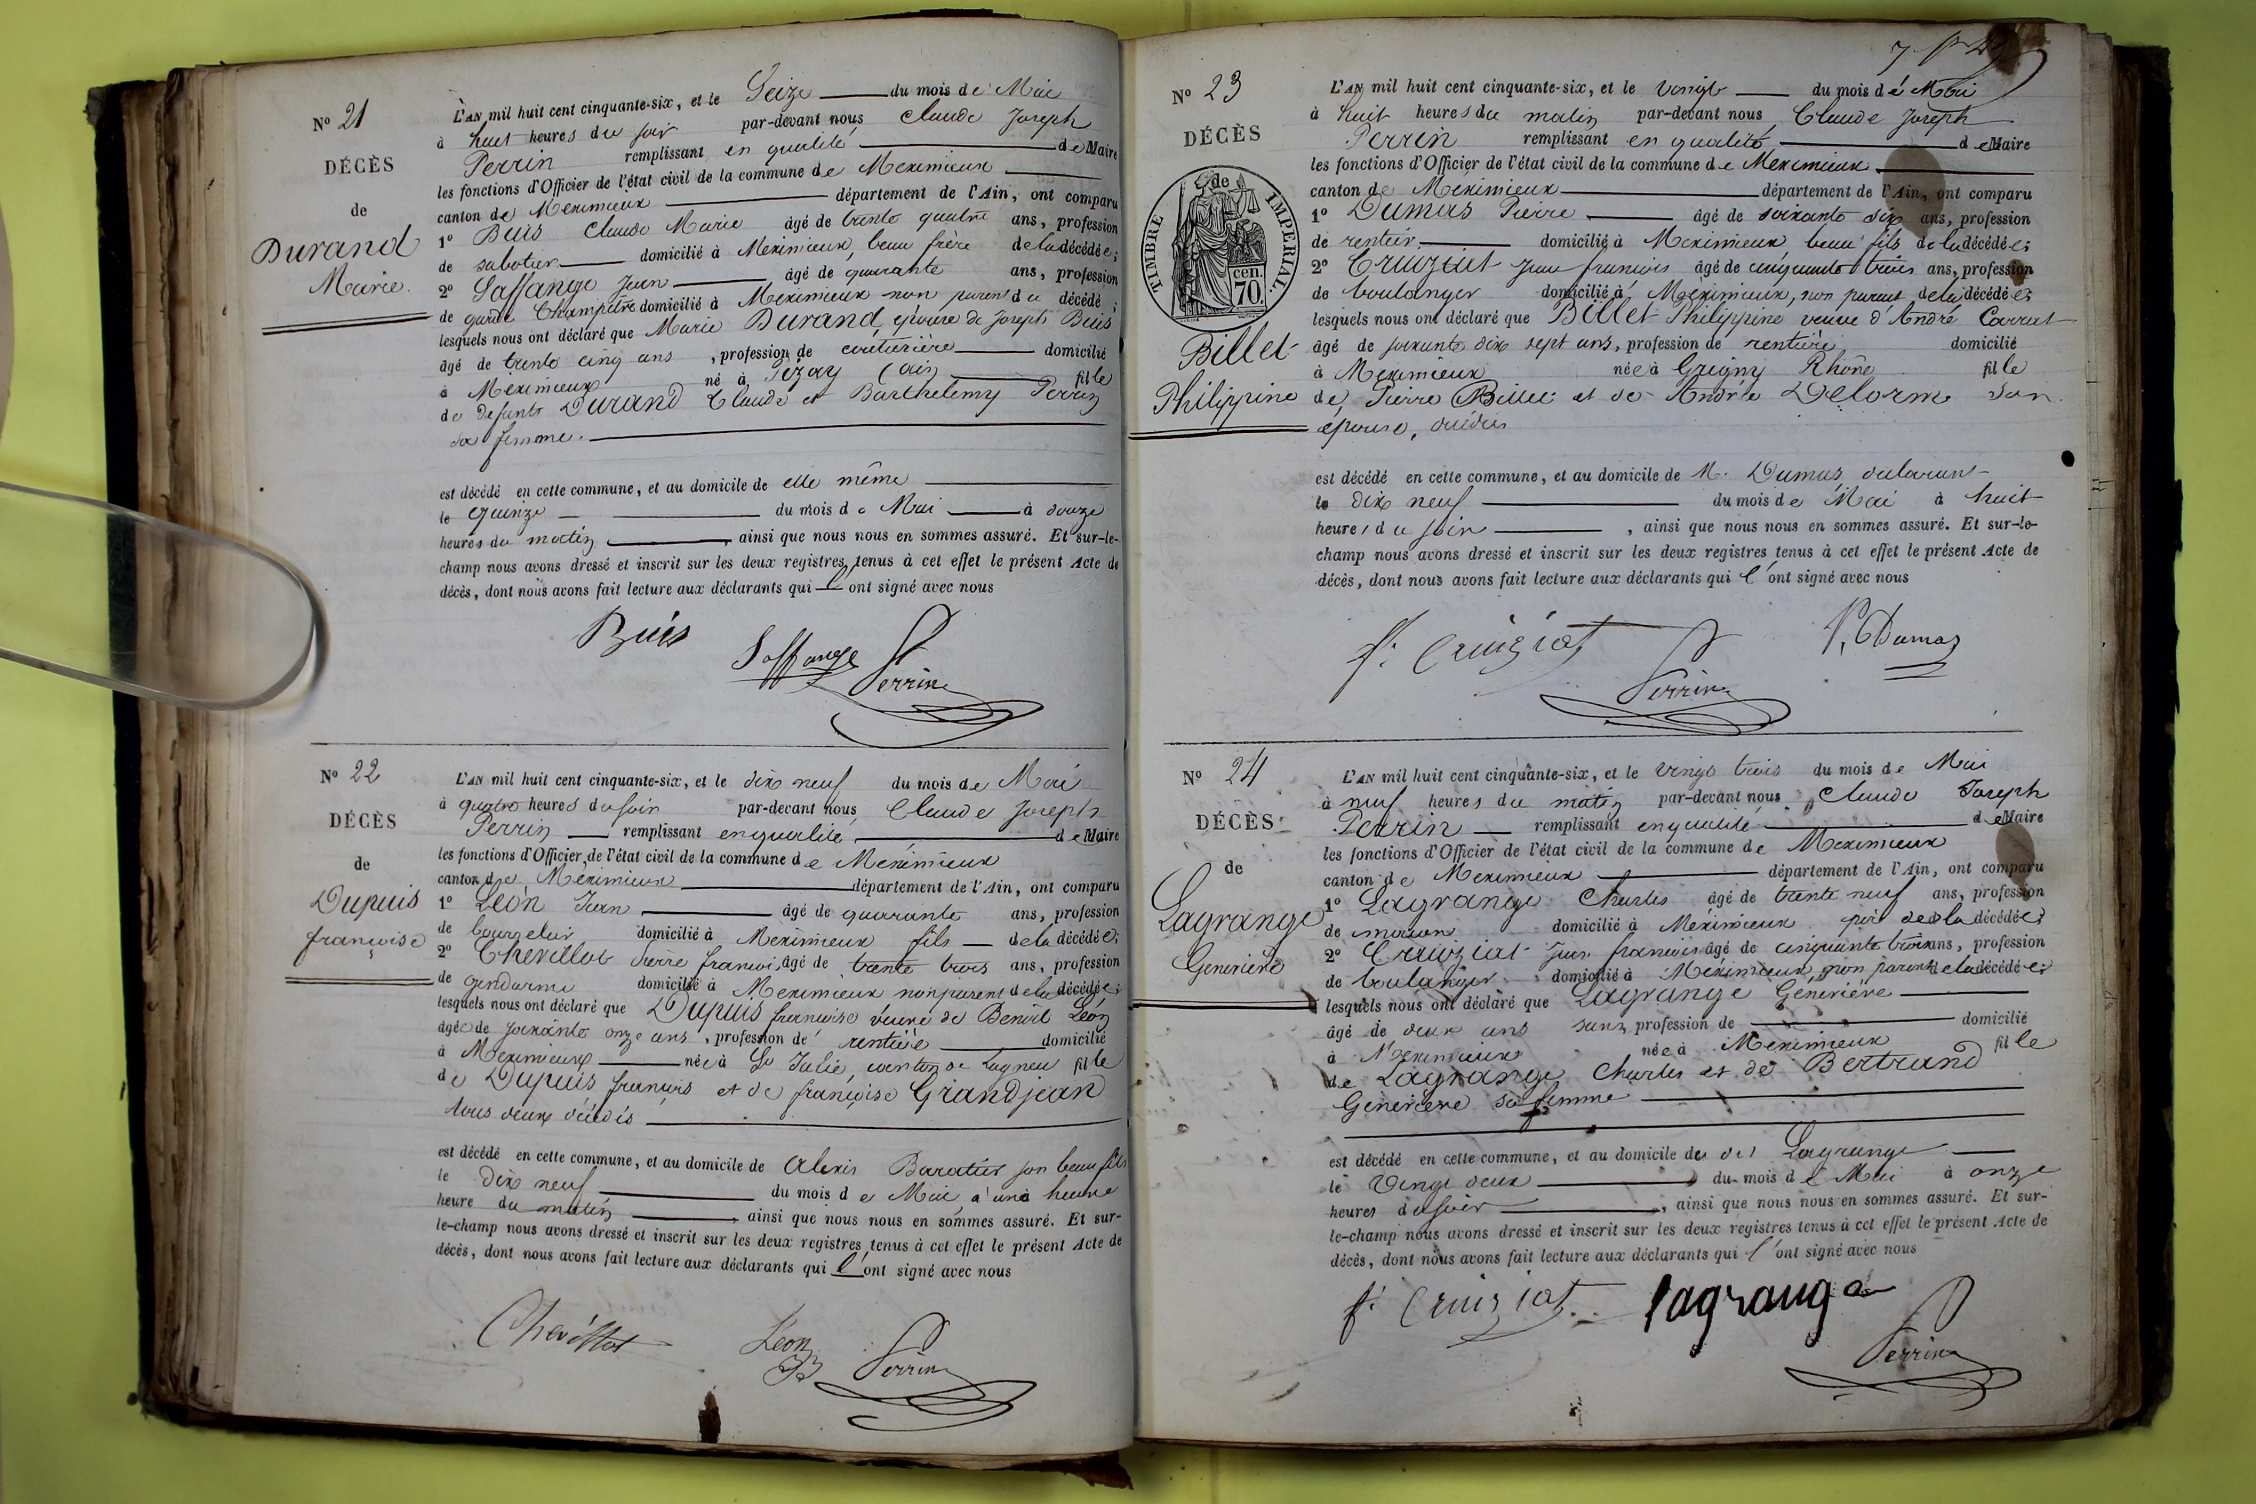 N° 21
DÉCÈS
de
Durand
Marie.
L'AN mil huit cent cinquante-six, et le Seize du mois de Mai
à huit heures du soir par-devant nous Claude Joseph
Perrin remplissant en qualité de Maire
les fonctions d'Officier de l'état civil de la commune de Meximieux
canton de Meximieux département de l'Ain, ont comparu
1° Buis Claude Marie âgé de trente quatre ans, profession
de sabotier domicilié à Meximieux, beau frère de la décédée;
2° Saffange Jean âgé de quarante ans, profession
de garde Champêtre domicilié à Meximieux non parent du décédé;
lesquels nous ont déclaré que Marie Durand, épouse de Joseph Buis
âgé de trente cinq ans, profession de couturière domicilié
à Meximieux né à (ain) fille
de defunts Durand Claude et Barthelemy Perrin
sa femme.
est décédé en cette commune, et au domicile de elle même
le quinze du mois de Mai à douze
heures du matin, ainsi que nous nous en sommes assuré. Et sur-le-
champ nous avons dressé et inscrit sur les deux registres tenus à cet effet le présent Acte de
décès, dont nous avons fait lecture aux déclarants qui l'ont signé avec nous
Buis
Saffange Perrin
N° 22
DÉCÈS
de
Dupuis
françoise
L'AN mil huit cent cinquante-six, et le dix neuf du mois de Mai
à quatre heures du soir par-devant nous Claude Joseph
Perrin remplissant en qualité de Maire
les fonctions d'Officier de l'état civil de la commune de Meximieux
canton de Meximieux département de l'Ain, ont comparu
1° Léon Jean âgé de quarante ans, profession
de bourrelier domicilié à Meximieux fils de la décédée;
2° Chevillot Pierre françois âgé de trente trois ans, profession
de gendarme domicilié à Meximieux non parent de la décédée;
lesquels nous ont déclaré que Dupuis françoise veuve de Benoit Léon
âgée de soixante onze ans, profession de rentière domicilié
à Meximieux née à St Julie, canton de Lagneu fille
de Dupuis françois et de françoise Grandjean
tous deux décédés
est décédé en cette commune, et au domicile de Alexis Baratier son beau fils
le dix neuf du mois de Mai à une heure
heure du matin, ainsi que nous nous en sommes assuré. Et sur-
le-champ nous avons dressé et inscrit sur les deux registres tenus à cet effet le présent Acte de
décès, dont nous avons fait lecture aux déclarants qui l'ont signé avec nous
Chevillot Léon Perrin
N° 23
DÉCÈS
de
TIMBRE IMPÉRIAL.
70. cen.
Billet
Philippine
L'AN mil huit cent cinquante-six, et le vingt du mois de Mai
à huit heures du matin par-devant nous Claude Joseph
Perrin remplissant en qualité de Maire
les fonctions d'Officier de l'état civil de la commune de Meximieux
canton de Meximieux département de l'Ain, ont comparu
1° Dumas Pierre âgé de soixante six ans, profession
de rentier domicilié à Meximieux beau fils de la décédée;
2° Cruiziat Jean francois âgé de cinquante trois ans, profession
de boulanger domicilié à Meximieux, non parent de la décédée;
lesquels nous ont déclaré que Billet Philippine veuve d'André Carrat
âgé de soixante dix sept ans, profession de rentière domicilié
à Meximieux née à Grigny Rhône fille
de Pierre Billet et de Andrée Delorme son
épouse, décédés
est décédé en cette commune, et au domicile de M. Dumas déclarant
le dix neuf du mois de Mai à huit
heures du soir, ainsi que nous nous en sommes assuré. Et sur-le-
champ nous avons dressé et inscrit sur les deux registres tenus à cet effet le présent Acte de
décès, dont nous avons fait lecture aux déclarants qui l'ont signé avec nous
f. Cruiziat Perrin P. Dumas
N° 24
DÉCÈS
de
Lagrange
Geneviève
L'AN mil huit cent cinquante-six, et le vingt trois du mois de Mai
à neuf heures du matin par-devant nous Claude Joseph
Perrin remplissant en qualité de Maire
les fonctions d'Officier de l'état civil de la commune de Meximieux
canton de Meximieux département de l'Ain, ont comparu
1° Lagrange Charles âgé de trente neuf ans, profession
de maçon domicilié à Meximieux père de la décédée;
2° Cruiziat Jean francois âgé de cinquante trois ans, profession
de boulanger domicilié à Meximieux, non parent de la décédée;
lesquels nous ont déclaré que Lagrange Géneviève
âgé de deux ans sans profession de domicilié
à Meximieux née à Meximieux fille
de Lagrange Charles et de Bertrand
Geneviève sa femme
est décédé en cette commune, et au domicile de Lagrange
le vingt deux du mois de Mai à onze
heures du soir, ainsi que nous nous en sommes assuré. Et sur-
le-champ nous avons dressé et inscrit sur les deux registres tenus à cet effet le présent Acte de
décès, dont nous avons fait lecture aux déclarants qui l'ont signé avec nous
f. Cruiziat lagrange
Perrin